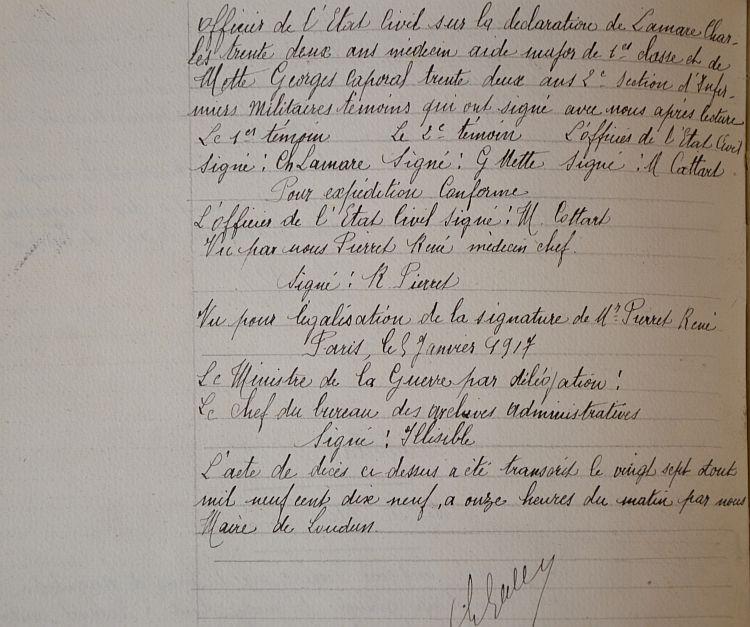 officier de l'Etat Civil sur la declaration de Lamare Char-
les trente deux ans médecin aide major de 1er classe et de
Mette Georges Caporal trente deux ans 2e section d'Infir-
miers Militaires témoins qui ont signé avec nous après lecture
Le 1er témoin Le 2e témoin L'officier de l'Etat Civil
signé: Ch Lamare Signé: G Mette signé: M Cottart
Pour expédition Conforme
L'officier de l'Etat Civil signé: M. Cottart
Vu par nous Pierret René médecin chef.
signé: R Pierret
Vu pour légalisation de la signature de Mr Pierret René
Paris, le 5 Janvier 1917
Le Ministre de la Guerre par délégation:
Le chef du bureau des archives administratives
signé: Illisible
L'acte de décès ci dessus a été transcrit le vingt sept Aout
mil neuf cent dix neuf, a onze heures du matin par nous
Maire de Loudun